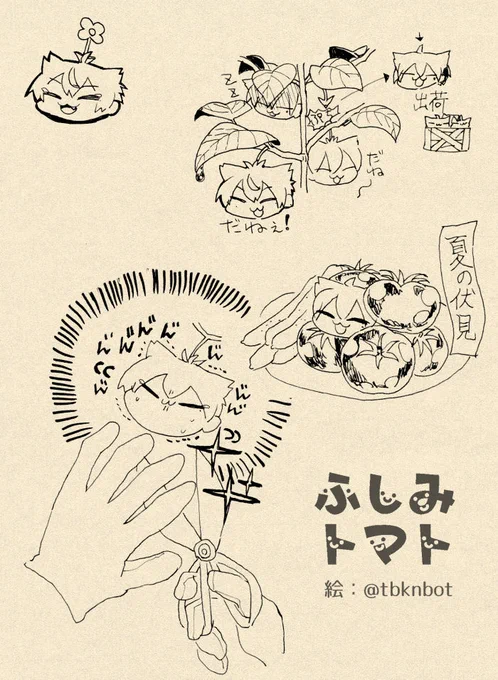 zzz
出荷
だね〜
だねぇ!
夏の伏見
ん゛ん゛ん゛ん゛ん゛
ん゛
ん゛ん゛
ふしみ
トマト
絵：@tbknbot